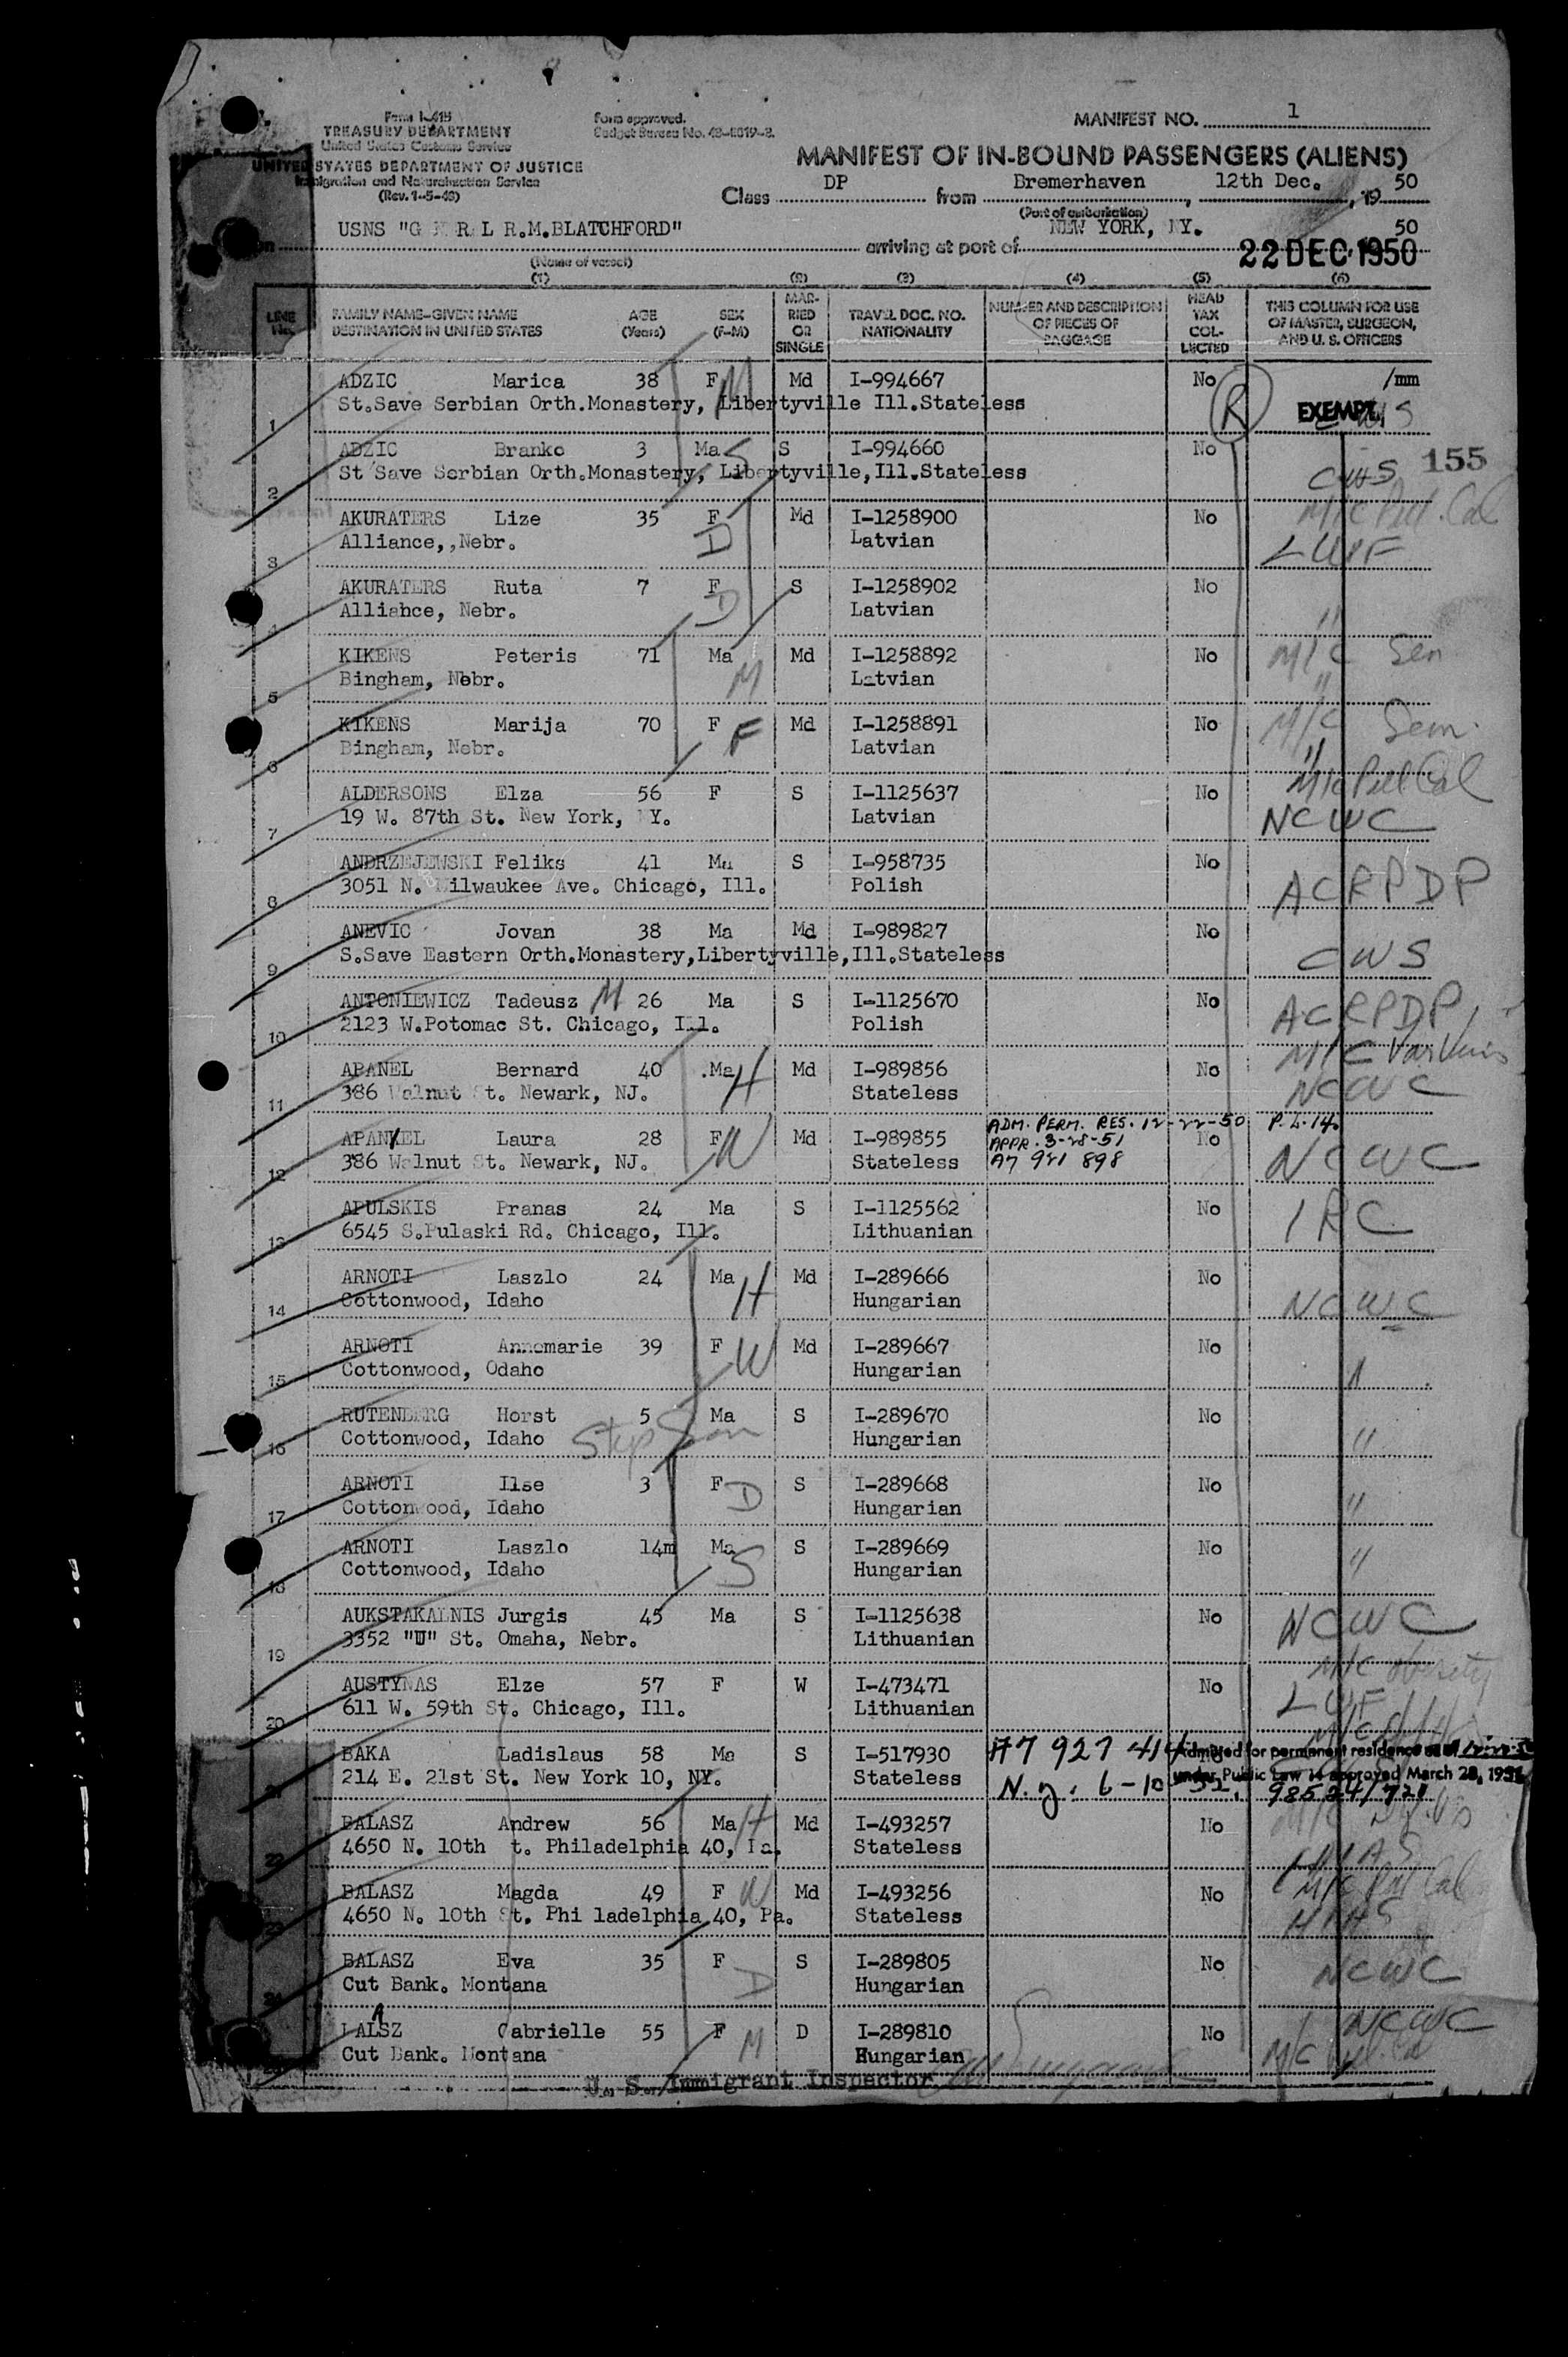 Form I-415
TREASURY DEPARTMENT
United States Customs Service
UNITED STATES DEPARTMENT OF JUSTICE
Immigration and Naturalization Service
(Rev. 1-5-49)
Form approved.
Budget Bureau No. 43-R019-3.
MANIFEST NO. 1
MANIFEST OF IN-BOUND PASSENGERS (ALIENS)
Class DP from Bremerhaven, 12th Dec., 19 50
(Port of embarkation)
USNS "G R L R.M.BLATCHFORD" arriving at port of NEW YORK, NY. 50
22 DEC 1950
(Name of vessel)
(1) (2) (3) (4) (5) (6)
LINE No. FAMILY NAME-GIVEN NAME DESTINATION IN UNITED STATES AGE (Years) SEX (F-M) MARRIED OR SINGLE TRAVEL DOC. NO. NATIONALITY NUMBER AND DESCRIPTION OF PIECES OF BAGGAGE HEAD TAX COLLECTED THIS COLUMN FOR USE OF MASTER, SURGEON, AND U. S. OFFICERS
ADZIC Marica 38 F M Md I-994667 No R /mm
1 St.Save Serbian Orth.Monastery, Libertyville Ill.Stateless EXEMPT
155
ADZIC Branko 3 Ma S S I-994660 No
2 St Save Serbian Orth.Monastery, Libertyville,Ill.Stateless CWS
AKURATERS Lize 35 F Md I-1258900 No M/C
3 Alliance,,Nebr. D Latvian LWF
AKURATERS Ruta 7 F S I-1258902 No
4 Alliahce, Nebr. D Latvian "
KIKENS Peteris 71 Ma Md I-1258892 No M/C Sen
5 Bingham, Nebr. M Latvian "
KIKENS Marija 70 F F Md I-1258891 No M/C Sem.
6 Bingham, Nebr. Latvian "
ALDERSONS Elza 56 F S I-1125637 No M/C
7 19 W. 87th St. New York, Y. Latvian NCWC
ANDRZEJEWSKI Feliks 41 Ma S I-958735 No
8 3051 N. Milwaukee Ave. Chicago, Ill. Polish ACRPDP
ANEVIC Jovan 38 Ma Md I-989827 No
9 S.Save Eastern Orth.Monastery,Libertyville,Ill.Stateless CWS
ANTONIEWICZ Tadeusz M 26 Ma S I-1125670 No ACRPDP
10 2123 W.Potomac St. Chicago, Ill. Polish
APANEL Bernard 40 .Ma H Md I-989856 No M/C
11 386 Walnut St. Newark, NJ. Stateless NCWC
APANEL Laura 28 F W Md I-989855 ADM. PERM. RES. 12-22-50 No P.L.14.
12 386 Walnut St. Newark, NJ. Stateless APPR. 3-28-51 NCWC
A7 921 898
APULSKIS Pranas 24 Ma S I-1125562 No
13 6545 S.Pulaski Rd. Chicago, Ill. Lithuanian IRC
ARNOTI Laszlo 24 Ma H Md I-289666 No
14 Cottonwood, Idaho Hungarian NCWC
ARNOTI Annemarie 39 F W Md I-289667 No
15 Cottonwood, Odaho Hungarian "
RUTENBERG Horst 5 Ma S I-289670 No
16 Cottonwood, Idaho Step Son Hungarian "
ARNOTI Ilse 3 F D S I-289668 No
17 Cottonwood, Idaho Hungarian "
ARNOTI Laszlo 14m Ma S S I-289669 No
18 Cottonwood, Idaho Hungarian "
AUKSTAKALNIS Jurgis 45 Ma S I-1125638 No NCWC
19 3352 "U" St. Omaha, Nebr. Lithuanian
AUSTYNAS Elze 57 F W I-473471 No M/C obesity
20 611 W. 59th St. Chicago, Ill. Lithuanian LWF
BAKA Ladislaus 58 Ma S I-517930 A7 927 414 Admitted for permanent residence as of 12-22-50
214 E. 21st St. New York 10, NY. Stateless N.Y. 6-10-52, under Public Law 14 approved March 28, 1951
BALASZ Andrew 56 Ma H Md I-493257 No M/C
4650 N. 10th t. Philadelphia 40, Pa. Stateless HIAS
BALASZ Magda 49 F W Md I-493256 No M/C
4650 N. 10th St. Phi ladelphia 40, Pa. Stateless HIAS
BALASZ Eva 35 F S I-289805 No
Cut Bank. Montana D Hungarian NCWC
BALSZ A Gabrielle 55 F M D I-289810 No NCWC
Cut Bank. Montana Hungarian M/C
U. S. Immigrant Inspector